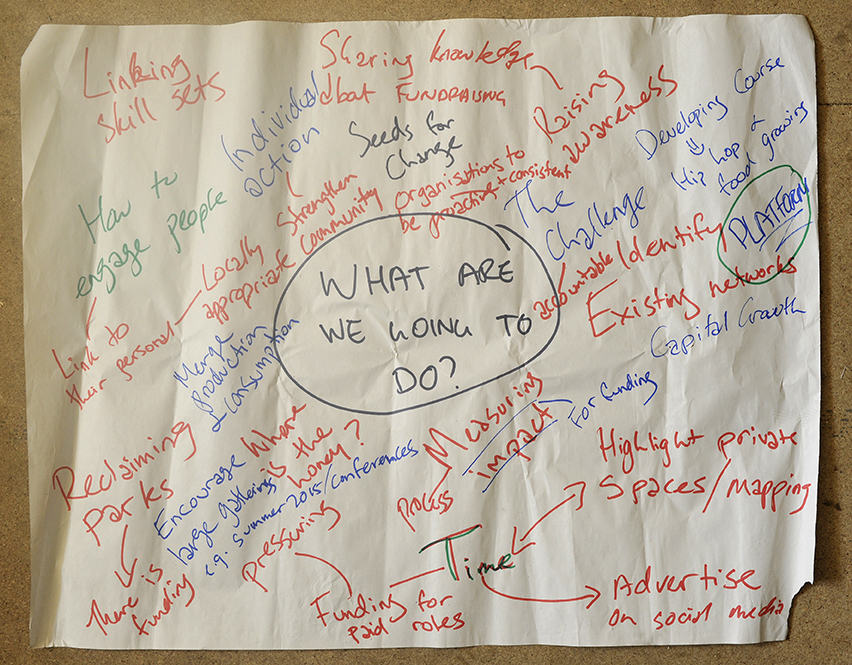 Linking
skill sets
Sharing knowledge
about FUNDRAISING
Raising
awareness
Developing Course
Hip hop &
food growing
Individual
action
Seeds for
Change
How to
engage people
Strengthen
community
organisations to
be proactive + consistent
accountable
The
Challenge
PLATFORM
Identify
Existing networks
Capital Growth
Locally
appropriate
Link to
their personal
WHAT ARE
WE GOING TO
DO?
Merge
Production
& Consumption
Measuring
impact
For funding
PROCESS
Where
is the
money?
Reclaiming
parks
There is
funding
Encourage
large gatherings
e.g. summer 2015/conferences
pressuring
Highlight private
Spaces/mapping
Time
Funding for
paid roles
Advertise
on social media